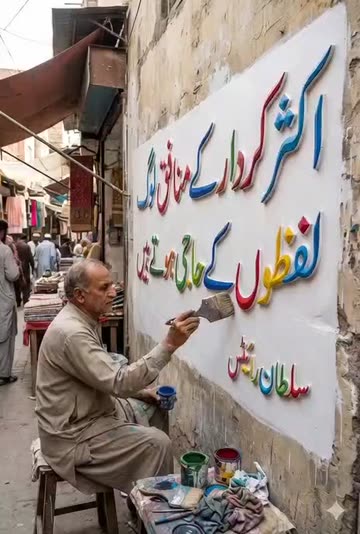 اکثر کردار کے منافق لوگ
لفظوں کے حاجی ہوتے ہیں
سلطان رائیٹس